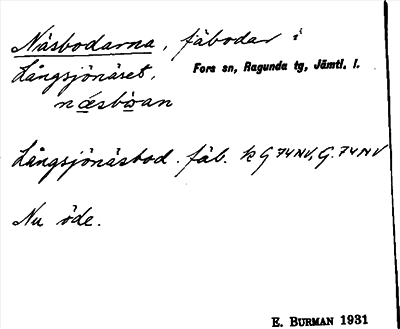 Näsbodarna, fäbodar i
Långsjönäset, Fors sn, Ragunda tg, Jämtl. l.
næsbòan
Långsjönäsbod. fäb. k G 74 NV, G. 74 NV
Nu öde.
E. BURMAN 1931